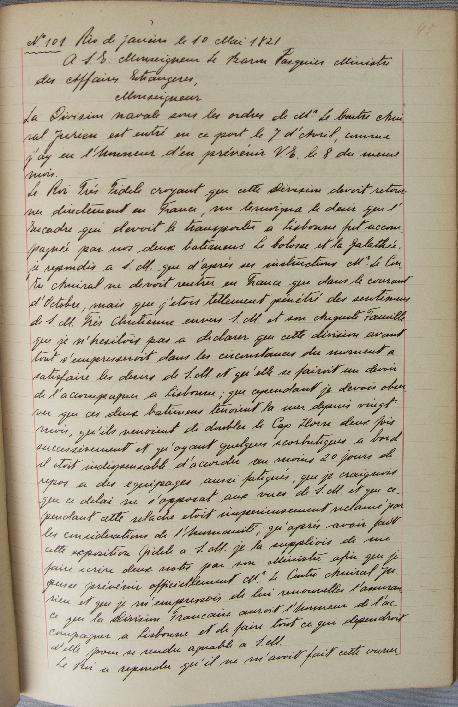 Nº 101 Rio de Janeiro le 10 Mai 1821
A S.E. Monseigneur Le Baron Pasquier Ministre
des Affaires Etrangeres,
Monseigneur
La Division navale sous les ordres de Mr Le Contre Ami-
ral Jurien est entré en ce port le 7 d'Avril, comme
j'ay eu l'honneur d'en prévénir V.E. le 8 du meme
mois.
Le Roi Très Fidele croyant que cette Division devoit retour-
ner directement en France, me temoigna le desir que l'
Escadre qui devoit le transporter a Lisbonne fut accom-
pagnée par nos deux batimens Le Colosse et la Galathée.
je repondis a S.M. que d'après ses instructions Mr. Le Con-
tre Amiral ne devoit rentrer en France que dans le courant
d'Octobre, mais que j'etois tellement pénétré des sentimens
de S.M. Très Chretienne envers S.M. et son Auguste Famille
que je n'hesitois pas a declarer que cette division avant
tout s'empresseroit dans les circonstances du moment a
satisfaire les desirs de S.M. et qu'elle se fairoit un devoir
de l'acompagner a Lisbonne; que cependant je devois obser-
ver que ces deux batimens tenoient la mer depuis vingt
mois, qu'ils venoient de doubler le Cap Horn deux fois
successivement et qu'ayant quelques scorbutiques a bord
il etoit indispensable d'accorder au moins 20 jours de
repos a des equipages aussi fatigués, que je craignois
que ce delai ne s'opposat aux vues de S.M. et que ce-
pendant cette relache etoit imperieusement reclamé par
les considerations de l'humanité, qu'après avoir fait
cette exposition fidele a S.M. je la suppliois de me
faire ecrire deux mots par son Ministre afin que je
pusse prévénir officiellement Mr. Le Contre Amiral Ju-
rien et que je m'empressois de lui renouveller l'assuran-
ce que la Division Francaise auroit l'honneur de l'ac-
compagner a Lisbonne et de faire tout ce qui dependroit
d'elle pour se rendre agreable a S.M.
Le Roi a repondu qu'il ne m'avoit fait cette ouver-